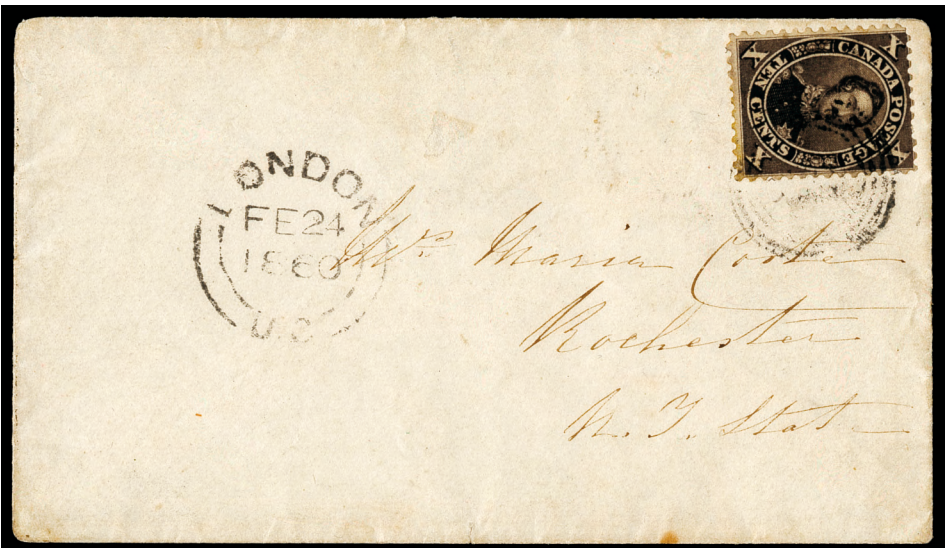 X CANADA POSTAGE X
X TEN CENTS X
LONDON
FE 24
1860
U.C
Mrs Maria Coote
Rochester
N. Y. State